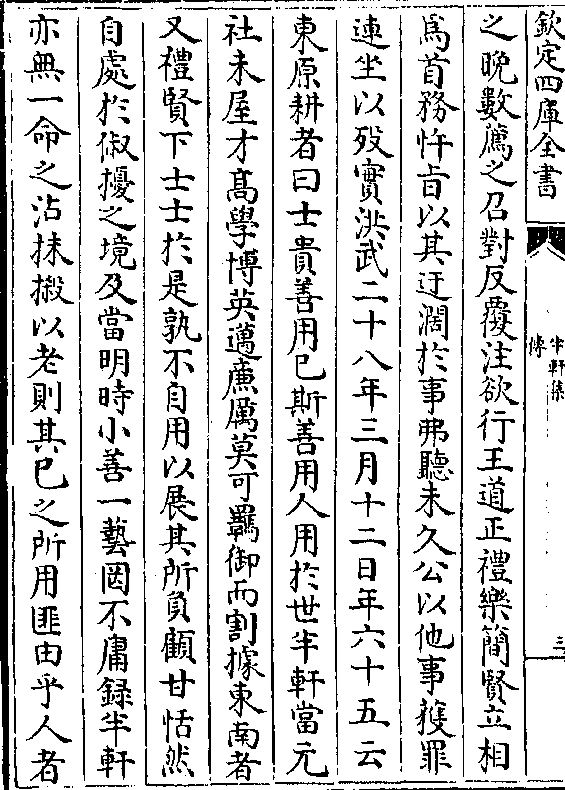 欽定四庫全書
半軒集
傳
三
之晩數薦之召對反覆注欲行王道正禮樂簡賢立相
為首務忤旨以其迂濶於事弗聽未久公以他事獲罪
連坐以殁實洪武二十八年三月十二日年六十五云
東原耕者曰士貴善用已斯善用人用於世半軒當元
社未屋才髙學博英邁亷厲莫可羈御而割據東南者
又禮賢下士士於是孰不自用以展其所負顧甘恬然
自處於俶擾之境及當明時小善一藝罔不庸録半軒
亦無一命之沾抹摋以老則其已之所用匪由乎人者